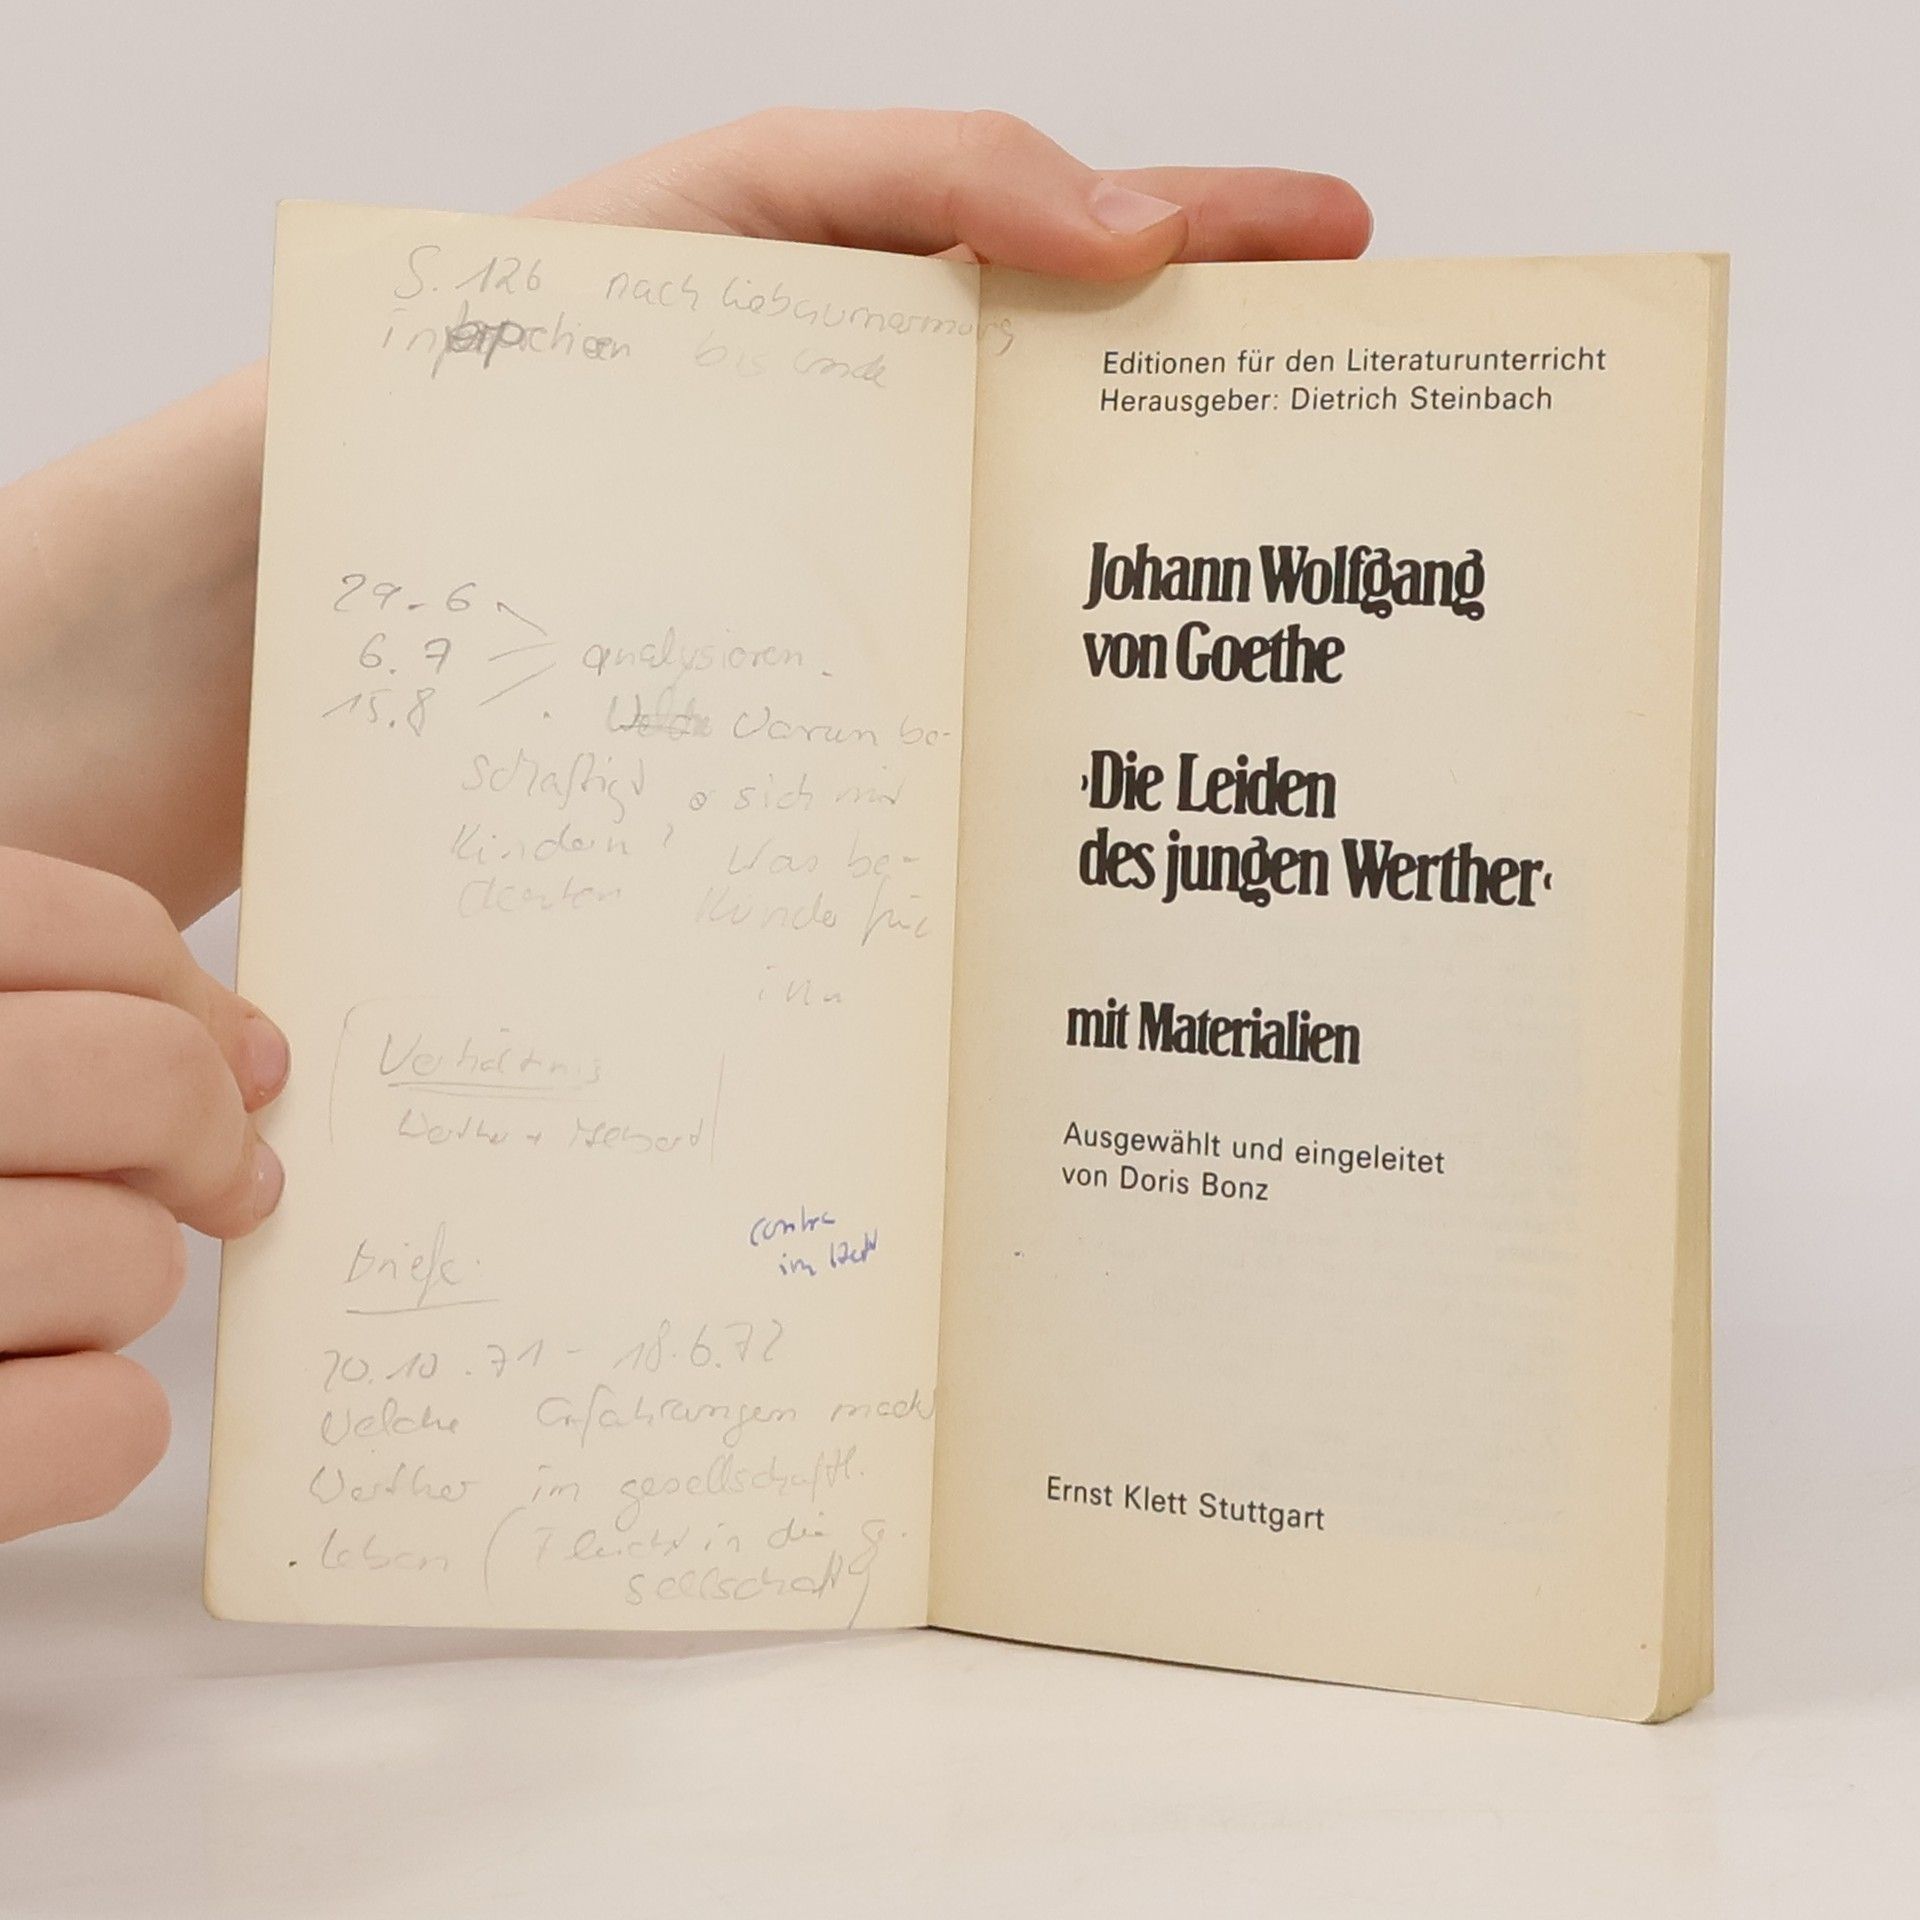 S. 126 nach
bis Ende
29.6
6.7 analysieren.
15.8
Warum be-
schäftigt er sich mit
Kindern? Was be-
deuten Kinder für
ihn
Verhältnis
Werther +
Briefe
contra
im
20.10.71 - 18.6.72
Welche Erfahrungen macht
Werther im gesellschaftl.
Leben ( in die Ge-
sellschaft)
Editionen für den Literaturunterricht
Herausgeber: Dietrich Steinbach
Johann Wolfgang
von Goethe
›Die Leiden
des jungen Werther‹
mit Materialien
Ausgewählt und eingeleitet
von Doris Bonz
Ernst Klett Stuttgart